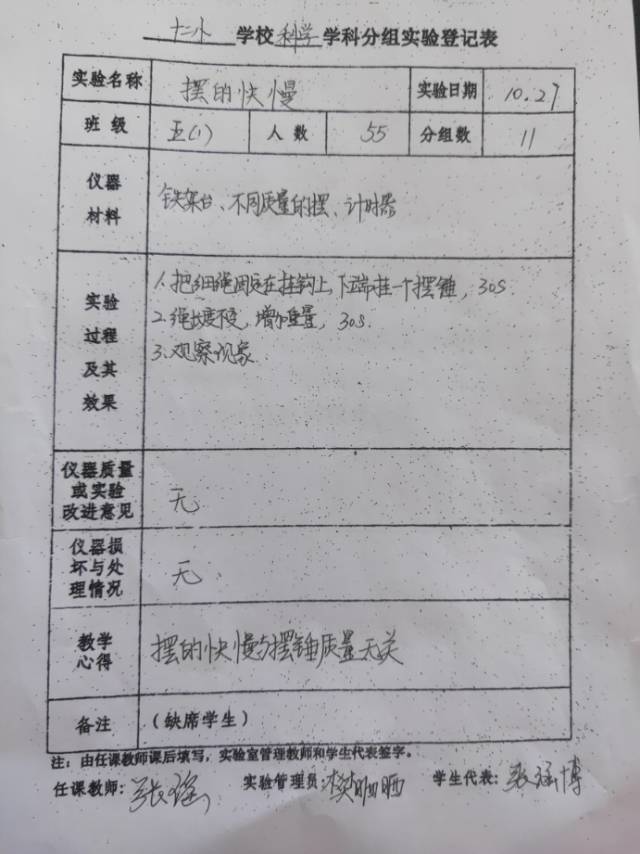 十二小 学校 科学 学科分组实验登记表
实验名称 摆的快慢 实验日期 10.27
班级 五(1) 人数 55 分组数 11
仪器材料 铁架台、不同质量的摆、计时器
实验过程及其效果 1.把细绳固定在挂钩上,下端挂一个摆锤,30s.
2.绳长度不变,增加重量,30s.
3.观察现象
仪器质量或实验改进意见 无
仪器损坏与处理情况 无
教学心得 摆的快慢与摆锤质量无关
备注 (缺席学生)
注:由任课教师课后填写,实验室管理教师和学生代表签字。
任课教师:张瑶 实验管理员: 学生代表: